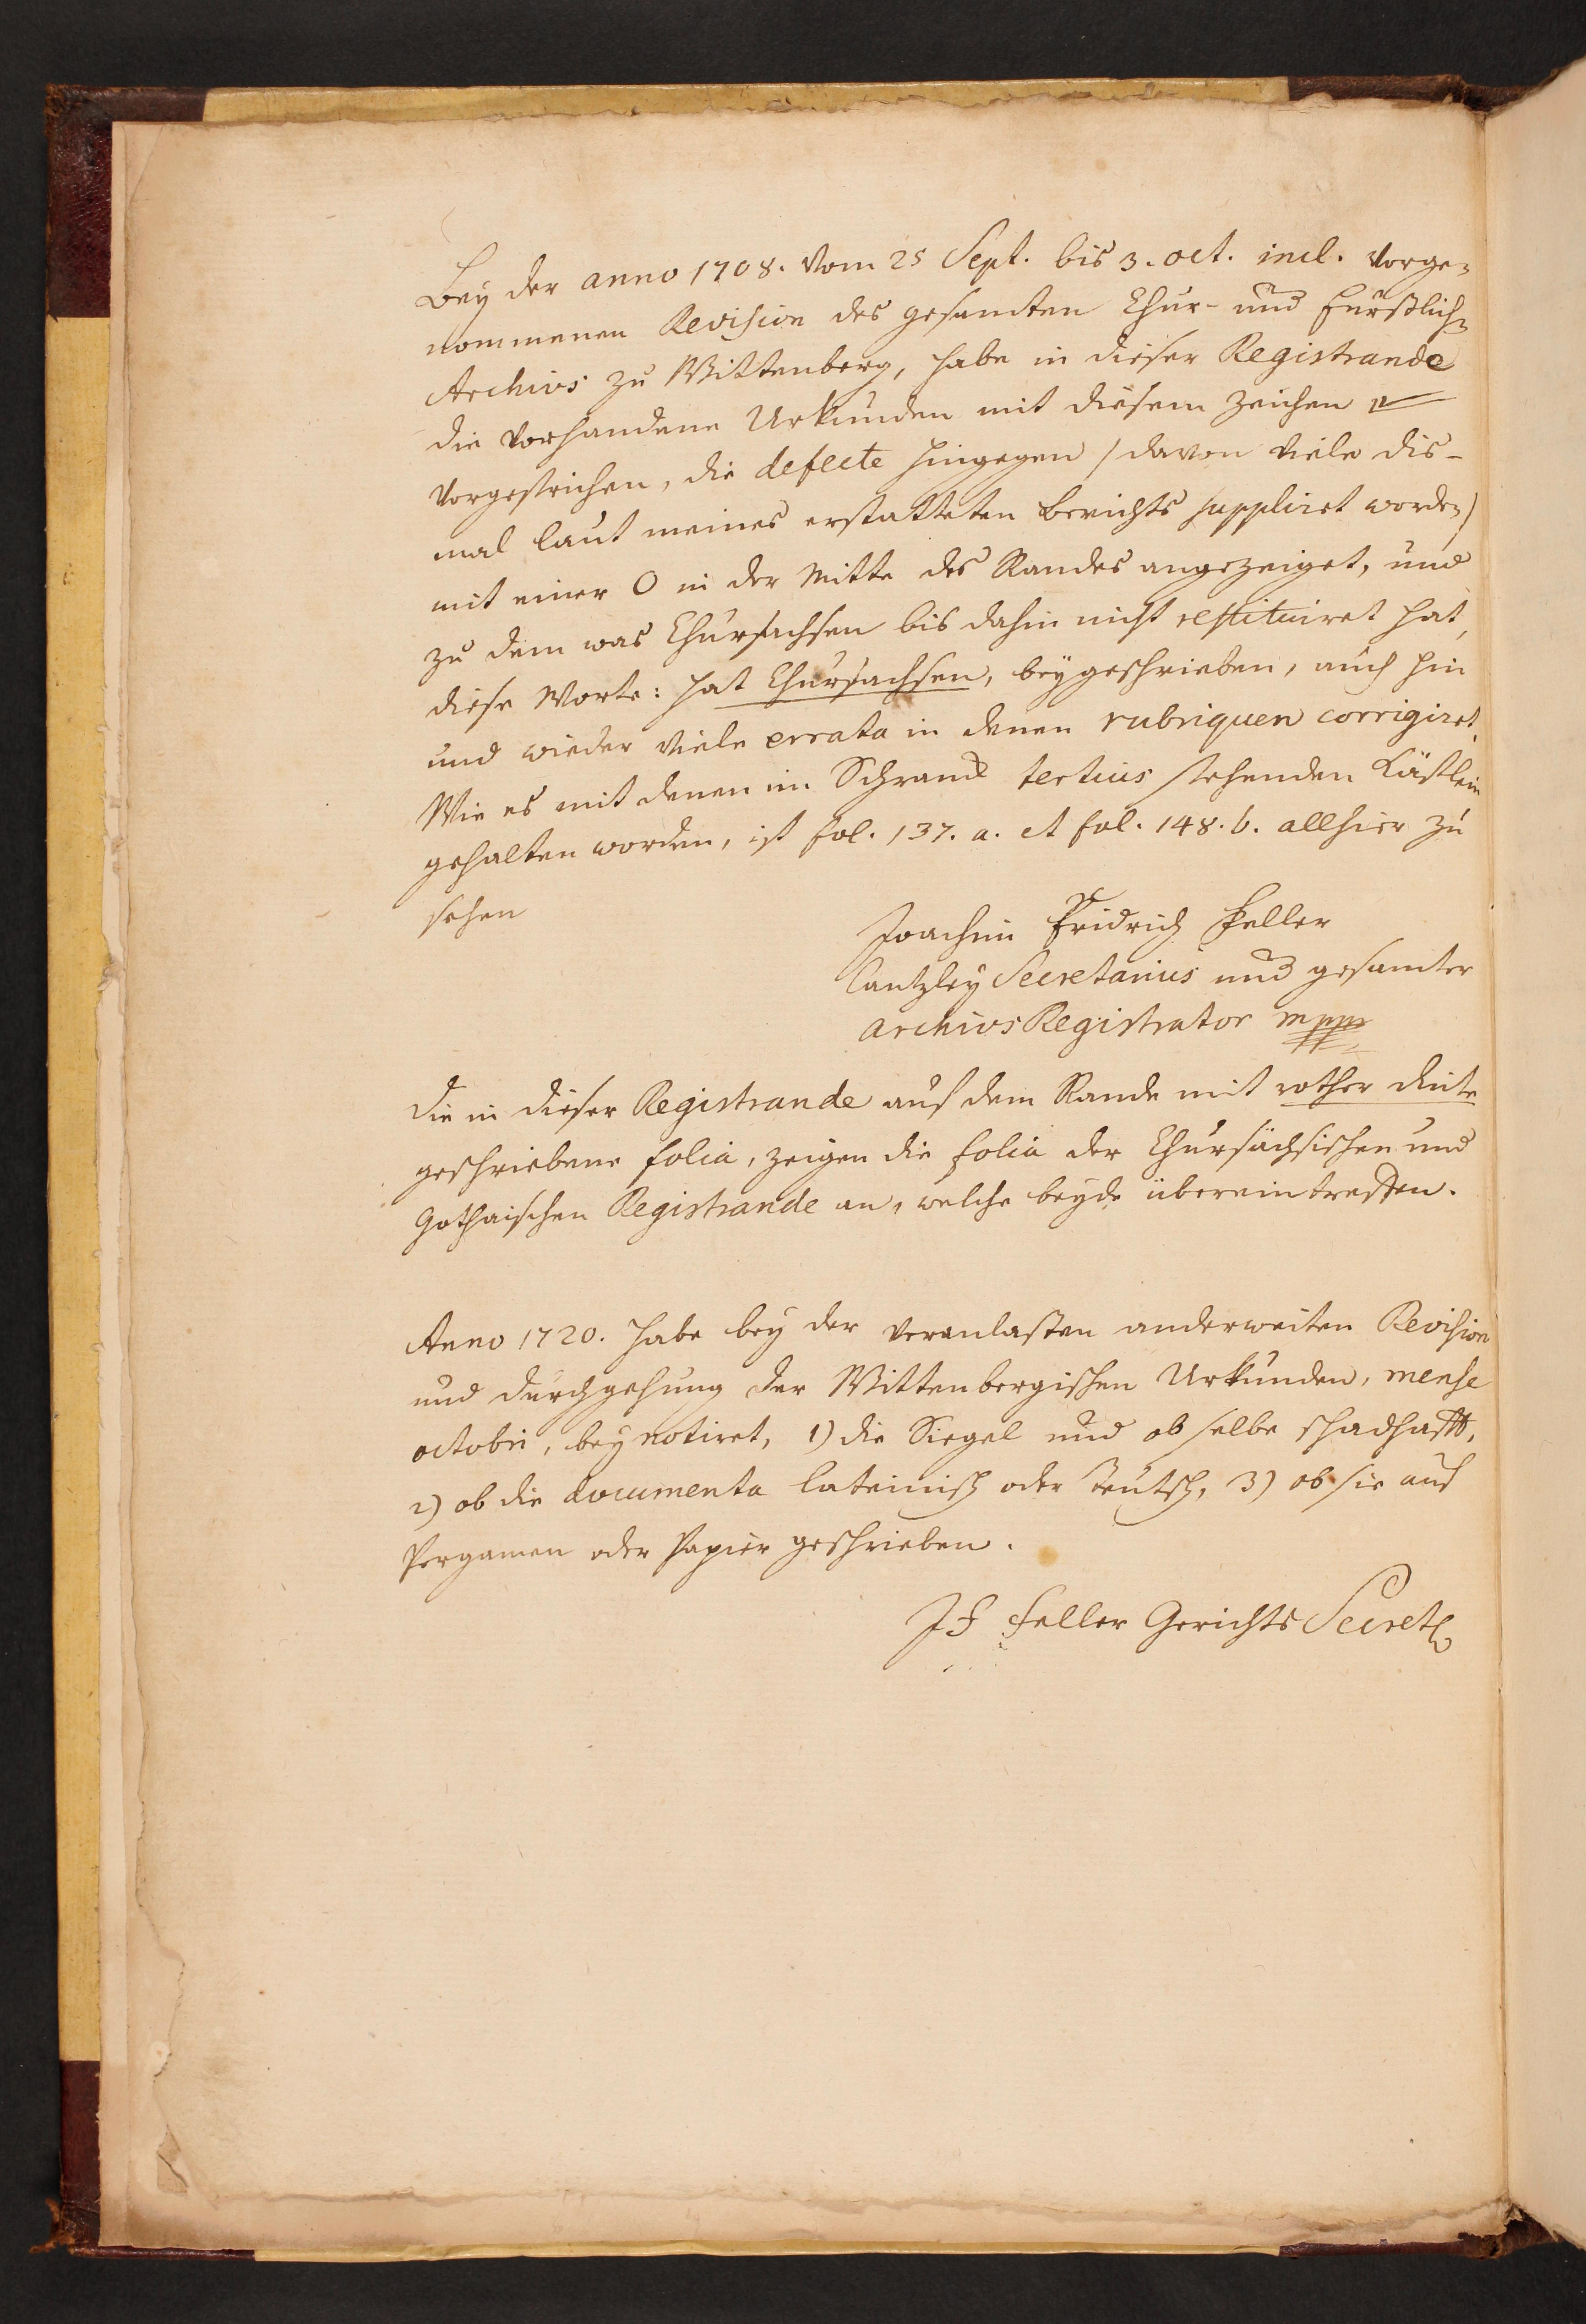 Bey der anno 1708. vom 25 Sept. bis 3. oct. incl. vorge-
nommenen Revision des gesamten Chur- und Fürstlich
Archivs zu Wittenberg, habe in dieser Registrande
die vorhandene Urkunden mit diesem Zeichen
vorgestrichen, die defecte hingegen /davon viele dis-
mal laut meines erstatteten berichts suppliret worden/
mit einer O in der Mitte des Randes angezeiget, und
zu dem was Chursachsen bis dahin nicht restituiret hat,
diese Worte: hat Chursachsen, beygeschrieben, auch hin
und wieder viele errata in denen rubriquen corrigiret.
Wie es mit denen im Schranck tertius stehenden Kästlein
gehalten worden, ist fol. 137. a. et fol. 148. b. allhier zu
sehen
Joachim Fridrich Feller
Cantzley Secretarius und gesamter
Archivs Registrator mppr
Die in dieser Registrande auf dem Rande mit rother dinte
geschriebene folia, zeigen die folia der Chursächsischen und
Gothaischen Registrande an, welche beyde übereintreffen.
Anno 1720. habe bey der veranlasten anderweiten Revision
und durchgehung der Wittenbergischen Urkunden, mense
octobri, bey notiret, 1) die Siegel und ob selbe schadhafft,
2) ob die documenta lateinisch oder Teutsch, 3) ob sie auf
Pergamen oder Papier geschrieben.
JF Feller Gerichts Secret